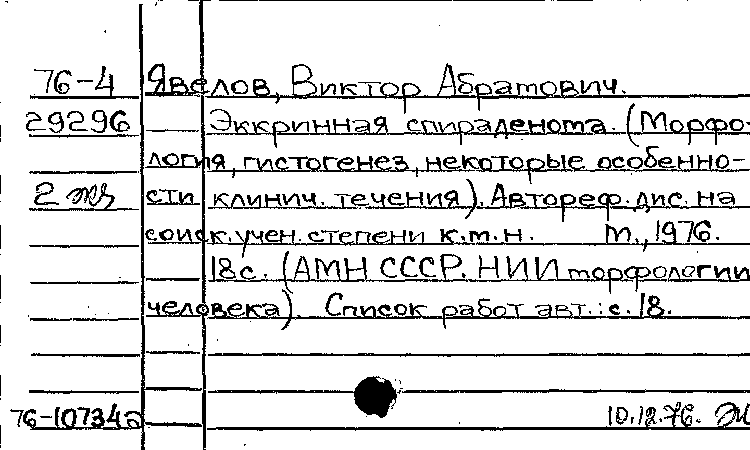 76-4 Явелов, Виктор Абрамович.
29296 Эккринная спираденома. (Морфо-
логия, гистогенез, некоторые особенно-
2 экз сти клинич. течения). Автореф. дис. на
соиск. учен. степени к.м.н. М., 1976.
18 с. (АМН СССР. НИИ морфологии
человека). Список работ авт.: с. 18.
76-107342 10.12.76.